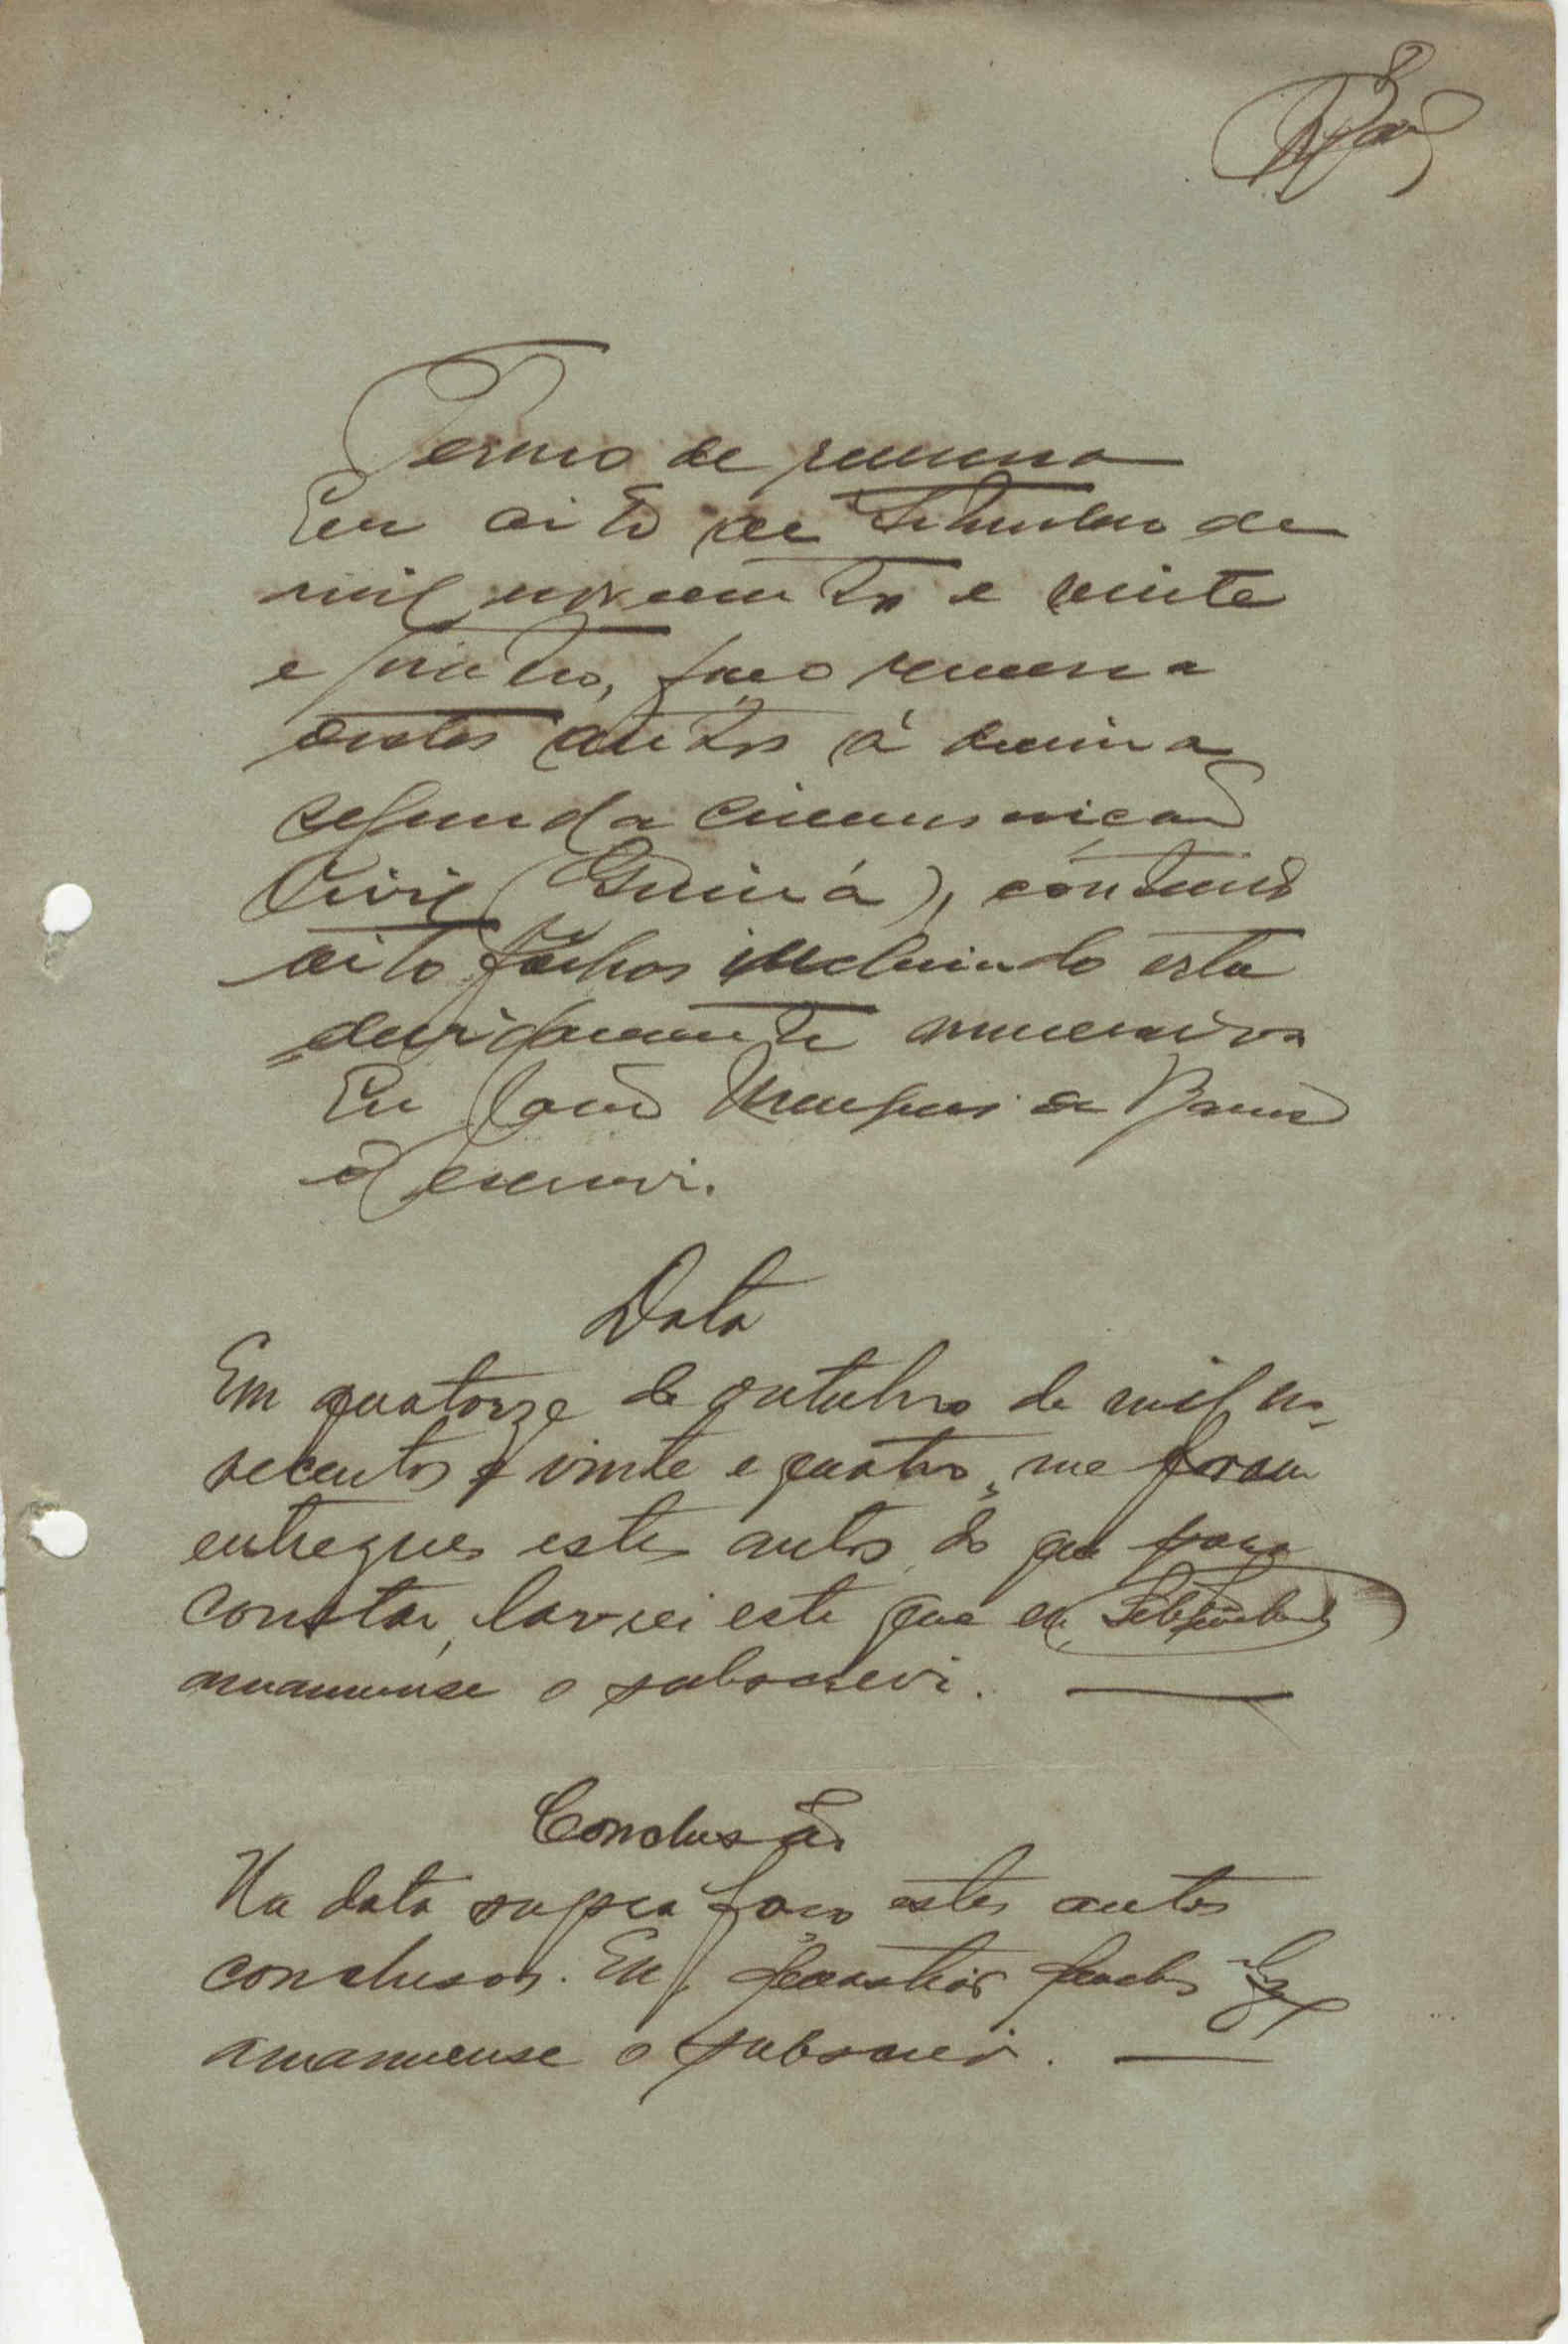 8
Termo de remessa
Em oito de Setembro de
mil novecentos e vinte
e quatro, faço remessa
destes autos á decima
segunda circumscrição
Civil (Guiné), contendo
oito folhas incluindo esta
devidamente numeradas
Eu João Marques de Barros
o escrevi.
Data
Em quatorze de outubro de mil no-
vecentos e vinte e quatro, me foram
entregues estes autos do que para
constar, lavrei este que eu,
amanuense o subscrevi.
Conclusão
Na data supra faço estes autos
conclusos. Eu,
amanuense o subscrevi.